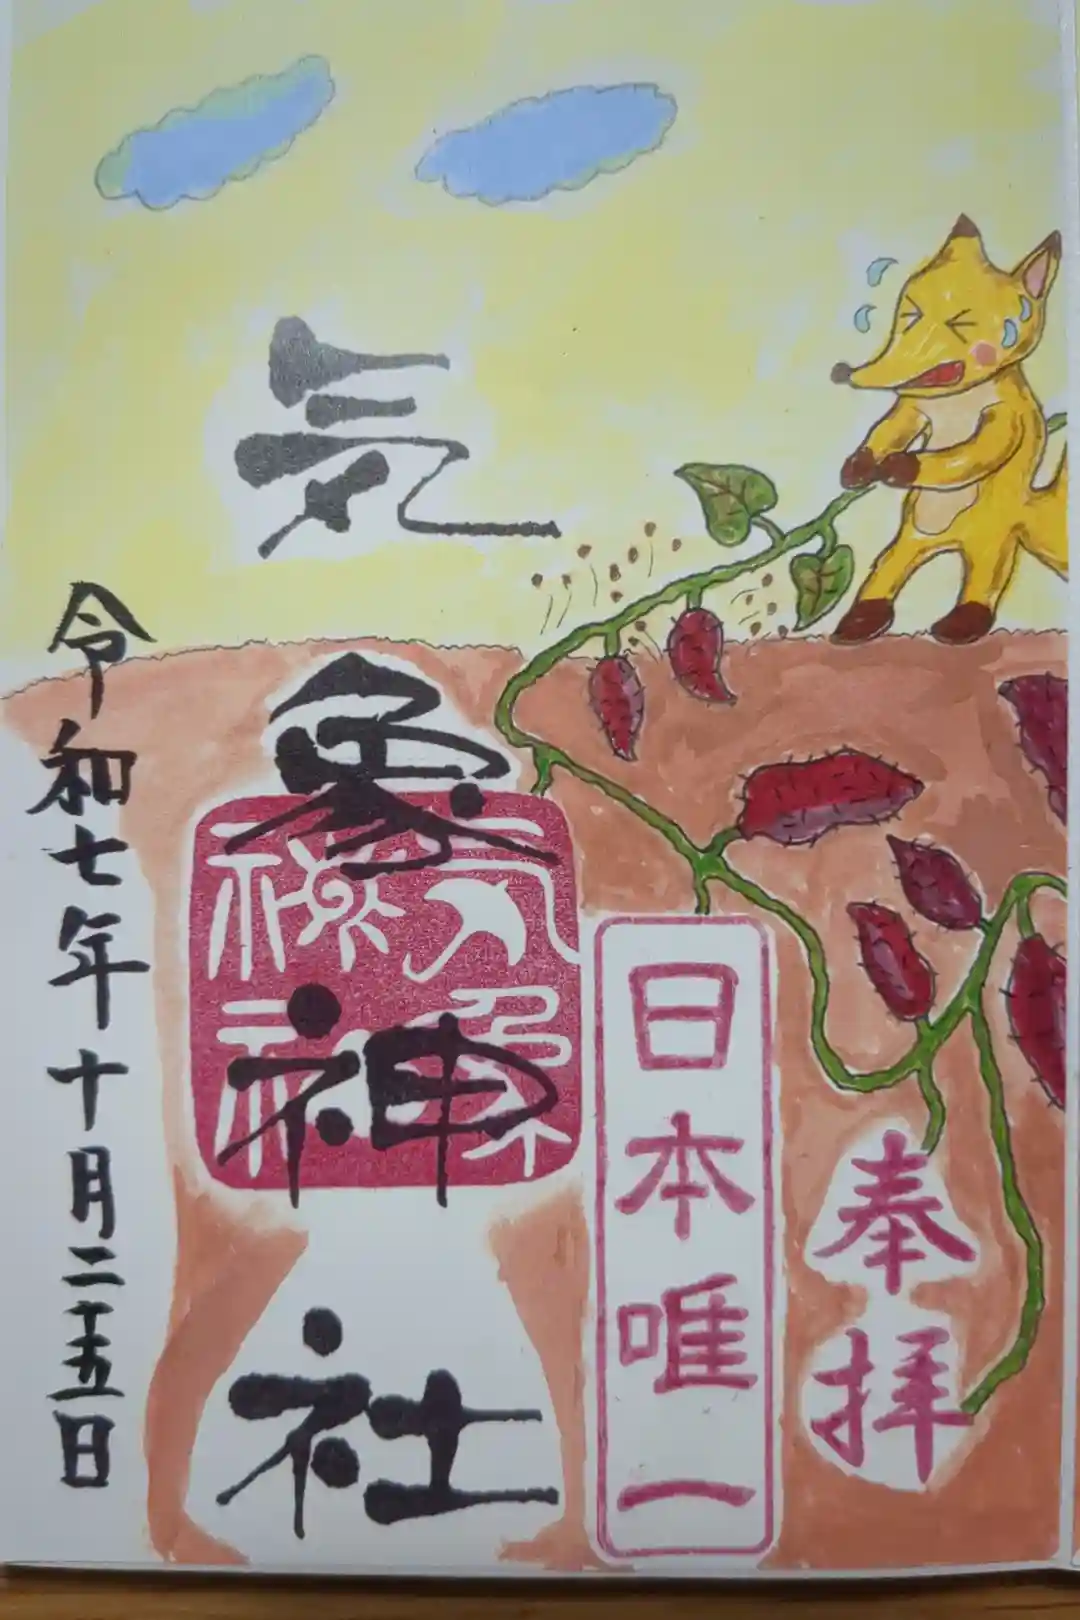 奉拝
日本唯一
気象神社
気象神社
令和七年十月二十五日